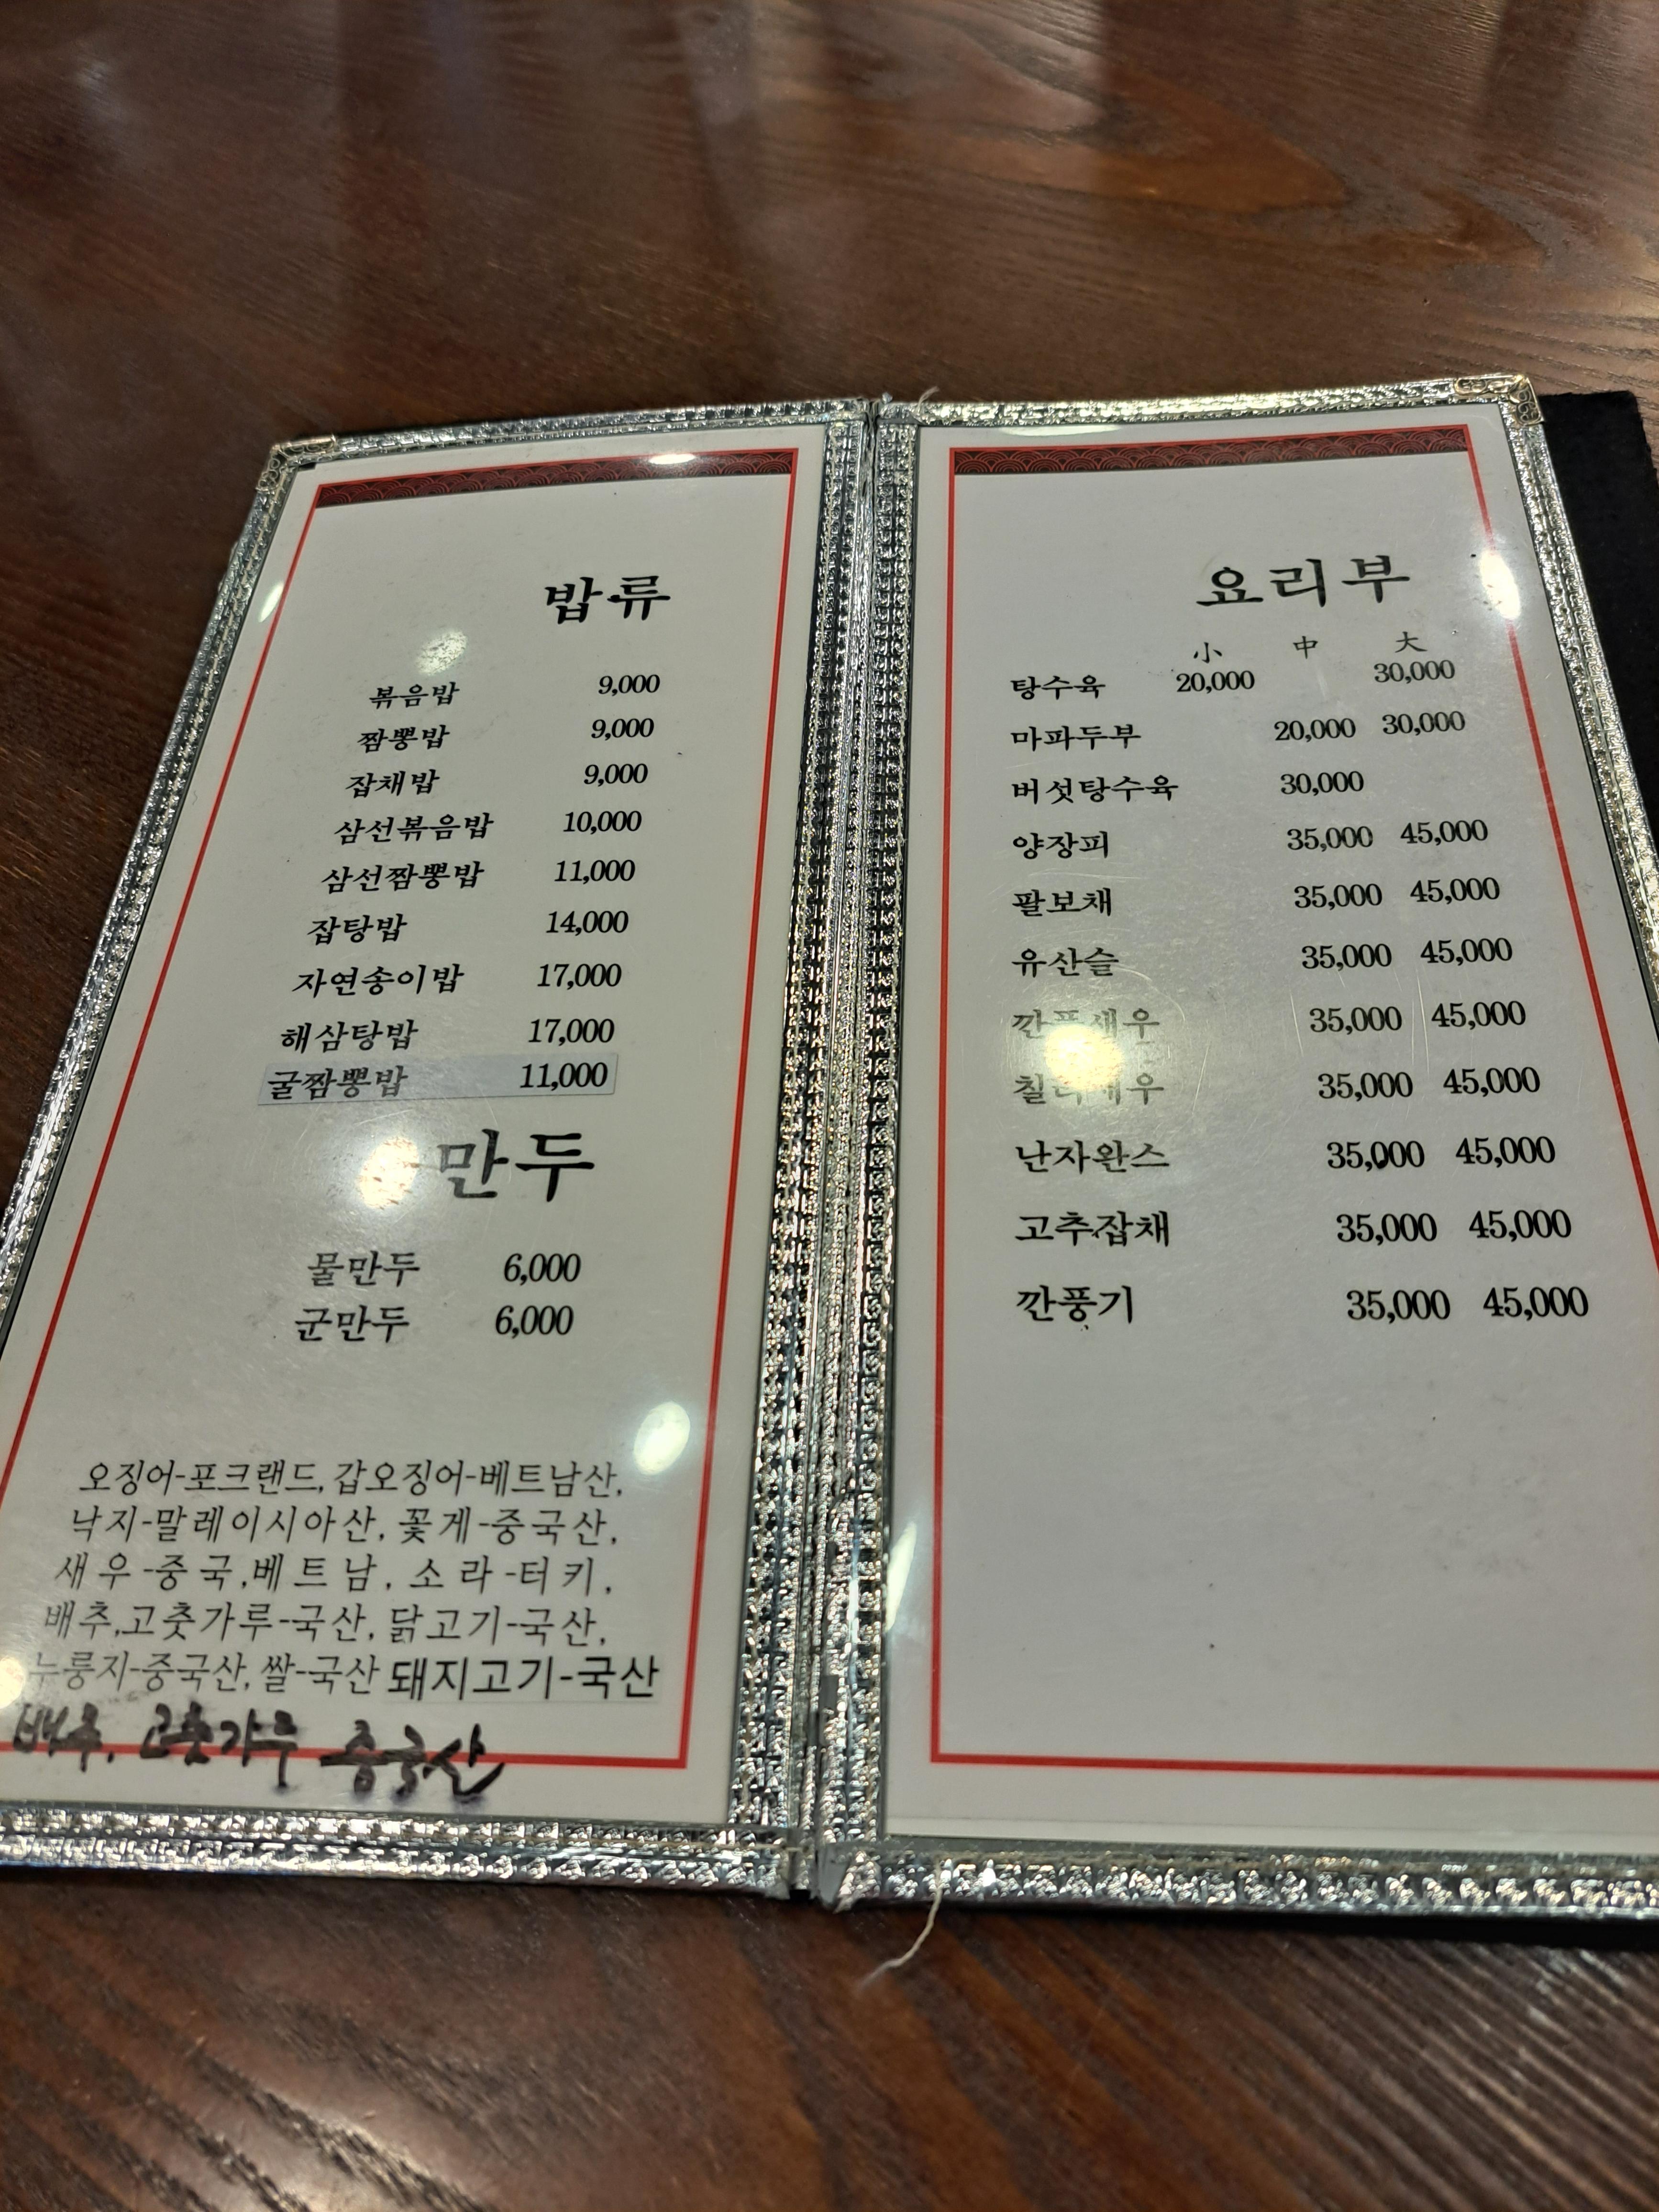 밥류
볶음밥 9,000
짬뽕밥 9,000
잡채밥 9,000
삼선볶음밥 10,000
삼선짬뽕밥 11,000
잡탕밥 14,000
자연송이밥 17,000
해삼탕밥 17,000
굴짬뽕밥 11,000
만두
물만두 6,000
군만두 6,000
오징어-포크랜드, 갑오징어-베트남산,
낙지-말레이시아산, 꽃게-중국산,
새우-중국,베트남, 소라-터키,
배추,고춧가루-국산, 닭고기-국산,
누룽지-중국산, 쌀-국산 돼지고기-국산
배추, 고춧가루 중국산
요리부
小 中 大
탕수육 20,000 30,000
마파두부 20,000 30,000
버섯탕수육 30,000
양장피 35,000 45,000
팔보채 35,000 45,000
유산슬 35,000 45,000
깐풍새우 35,000 45,000
칠리새우 35,000 45,000
난자완스 35,000 45,000
고추잡채 35,000 45,000
깐풍기 35,000 45,000